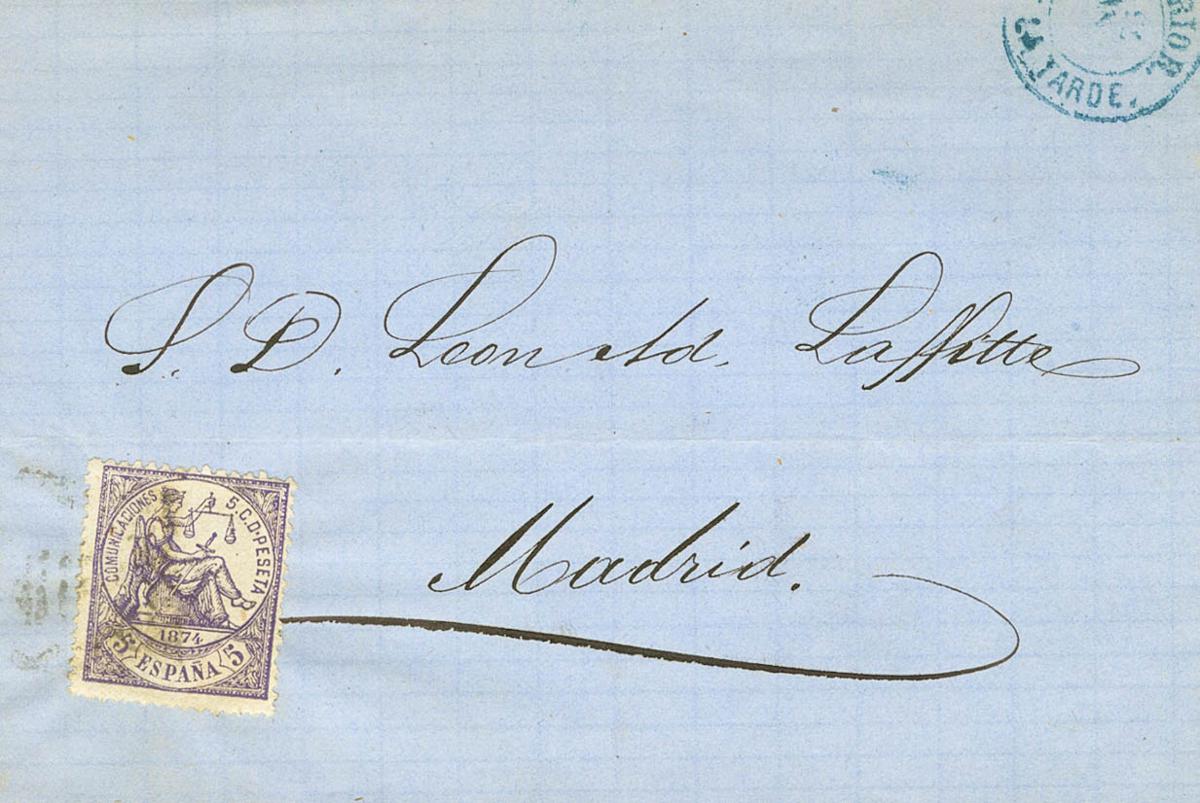 RIOR.
TARDE.
S. D. Leonald. Laffitte
Madrid.
COMUNICACIONES 5. C. D. PESETA
1874
5 ESPAÑA 5